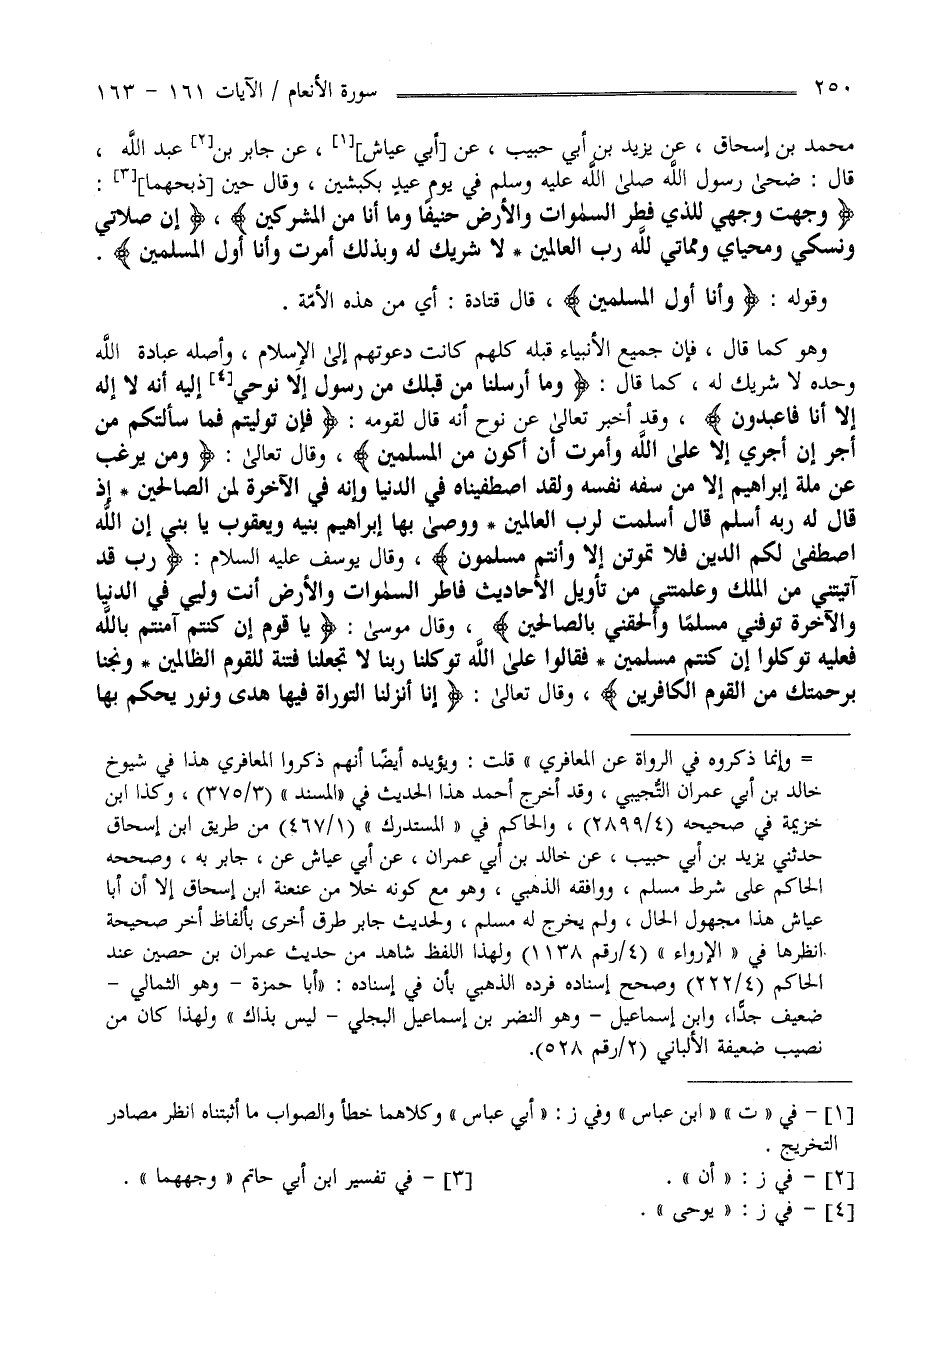 ٢٥٠ سورة الأنعام / الآيات ١٦١ - ١٦٣
محمد بن إسحاق ، عن يزيد بن أبي حبيب ، عن [أبي عياش][١] ، عن جابر بن[٢] عبد اللَّه ،
قال : ضحى رسول اللَّه صلى اللَّه عليه وسلم في يوم عيدٍ بكبشين ، وقال حين [ذبحهما][٣] :
﴿ وجهت وجهي للذي فطر السموات والأرض حنيفًا وما أنا من المشركين ﴾ ، ﴿ إن صلاتي
ونسكي ومحياي ومماتي للَّه رب العالمين * لا شريك له وبذلك أمرت وأنا أول المسلمين ﴾ .
وقوله : ﴿ وأنا أول المسلمين ﴾ ، قال قتادة : أي من هذه الأمّة .
وهو كما قال ، فإن جميع الأنبياء قبله كلهم كانت دعوتهم إلى الإسلام ، وأصله عبادة اللَّه
وحده لا شريك له ، كما قال : ﴿ وما أرسلنا من قبلك من رسول إلا نوحي[٤] إليه أنه لا إله
إلا أنا فاعبدون ﴾ ، وقد أخبر تعالى عن نوح أنه قال لقومه : ﴿ فإن توليتم فما سألتكم من
أجر إن أجري إلا على اللَّه وأمرت أن أكون من المسلمين ﴾ ، وقال تعالى : ﴿ ومن يرغب
عن ملة إبراهيم إلا من سفه نفسه ولقد اصطفيناه في الدنيا وإنه في الآخرة لمن الصالحين * إذ
قال له ربه أسلم قال أسلمت لرب العالمين * ووصى بها إبراهيم بنيه ويعقوب يا بني إن اللَّه
اصطفى لكم الدين فلا تموتن إلا وأنتم مسلمون ﴾ ، وقال يوسف عليه السلام : ﴿ رب قد
آتيتني من الملك وعلمتني من تأويل الأحاديث فاطر السموات والأرض أنت وليي في الدنيا
والآخرة توفني مسلمًا وألحقني بالصالحين ﴾ ، وقال موسى : ﴿ يا قوم إن كنتم آمنتم باللَّه
فعليه توكلوا إن كنتم مسلمين * فقالوا على اللَّه توكلنا ربنا لا تجعلنا فتنة للقوم الظالمين * ونجنا
برحمتك من القوم الكافرين ﴾ ، وقال تعالى : ﴿ إنا أنزلنا التوراة فيها هدى ونور يحكم بها
= وإنما ذكروه في الرواة عن المعافري » قلت : ويؤيده أيضًا أنهم ذكروا المعافري هذا في شيوخ
خالد بن أبي عمران التُّجيبي ، وقد أخرج أحمد هذا الحديث في «المسند » (٣٧٥/٣) ، وكذا ابن
خزيمة في صحيحه (٢٨٩٩/٤) ، والحاكم في « المستدرك » (٤٦٧/١) من طريق ابن إسحاق
حدثني يزيد بن أبي حبيب ، عن خالد بن أبي عمران ، عن أبي عياش عن ، جابر به ، وصححه
الحاكم على شرط مسلم ، ووافقه الذهبي ، وهو مع كونه خلا من عنعنة ابن إسحاق إلا أن أبا
عياش هذا مجهول الحال ، ولم يخرج له مسلم ، ولحديث جابر طرق أخرى بألفاظ أخر صحيحة
انظرها في « الإرواء » (٤/رقم ١١٣٨) ولهذا اللفظ شاهد من حديث عمران بن حصين عند
الحاكم (٢٢٢/٤) وصحح إسناده فرده الذهبي بأن في إسناده : «أبا حمزة - وهو الثمالي -
ضعيف جدًّا، وابن إسماعيل - وهو النضر بن إسماعيل البجلي - ليس بذاك » ولهذا كان من
نصيب ضعيفة الألباني (٢/رقم ٥٢٨).
[١] - في « ت » « ابن عباس » وفي ز : « أبي عباس » وكلاهما خطأ والصواب ما أثبتناه انظر مصادر
التخريج .
[٢] - في ز : « أن » . [٣] - في تفسير ابن أبي حاتم « وجههما » .
[٤] - في ز : « يوحى » .